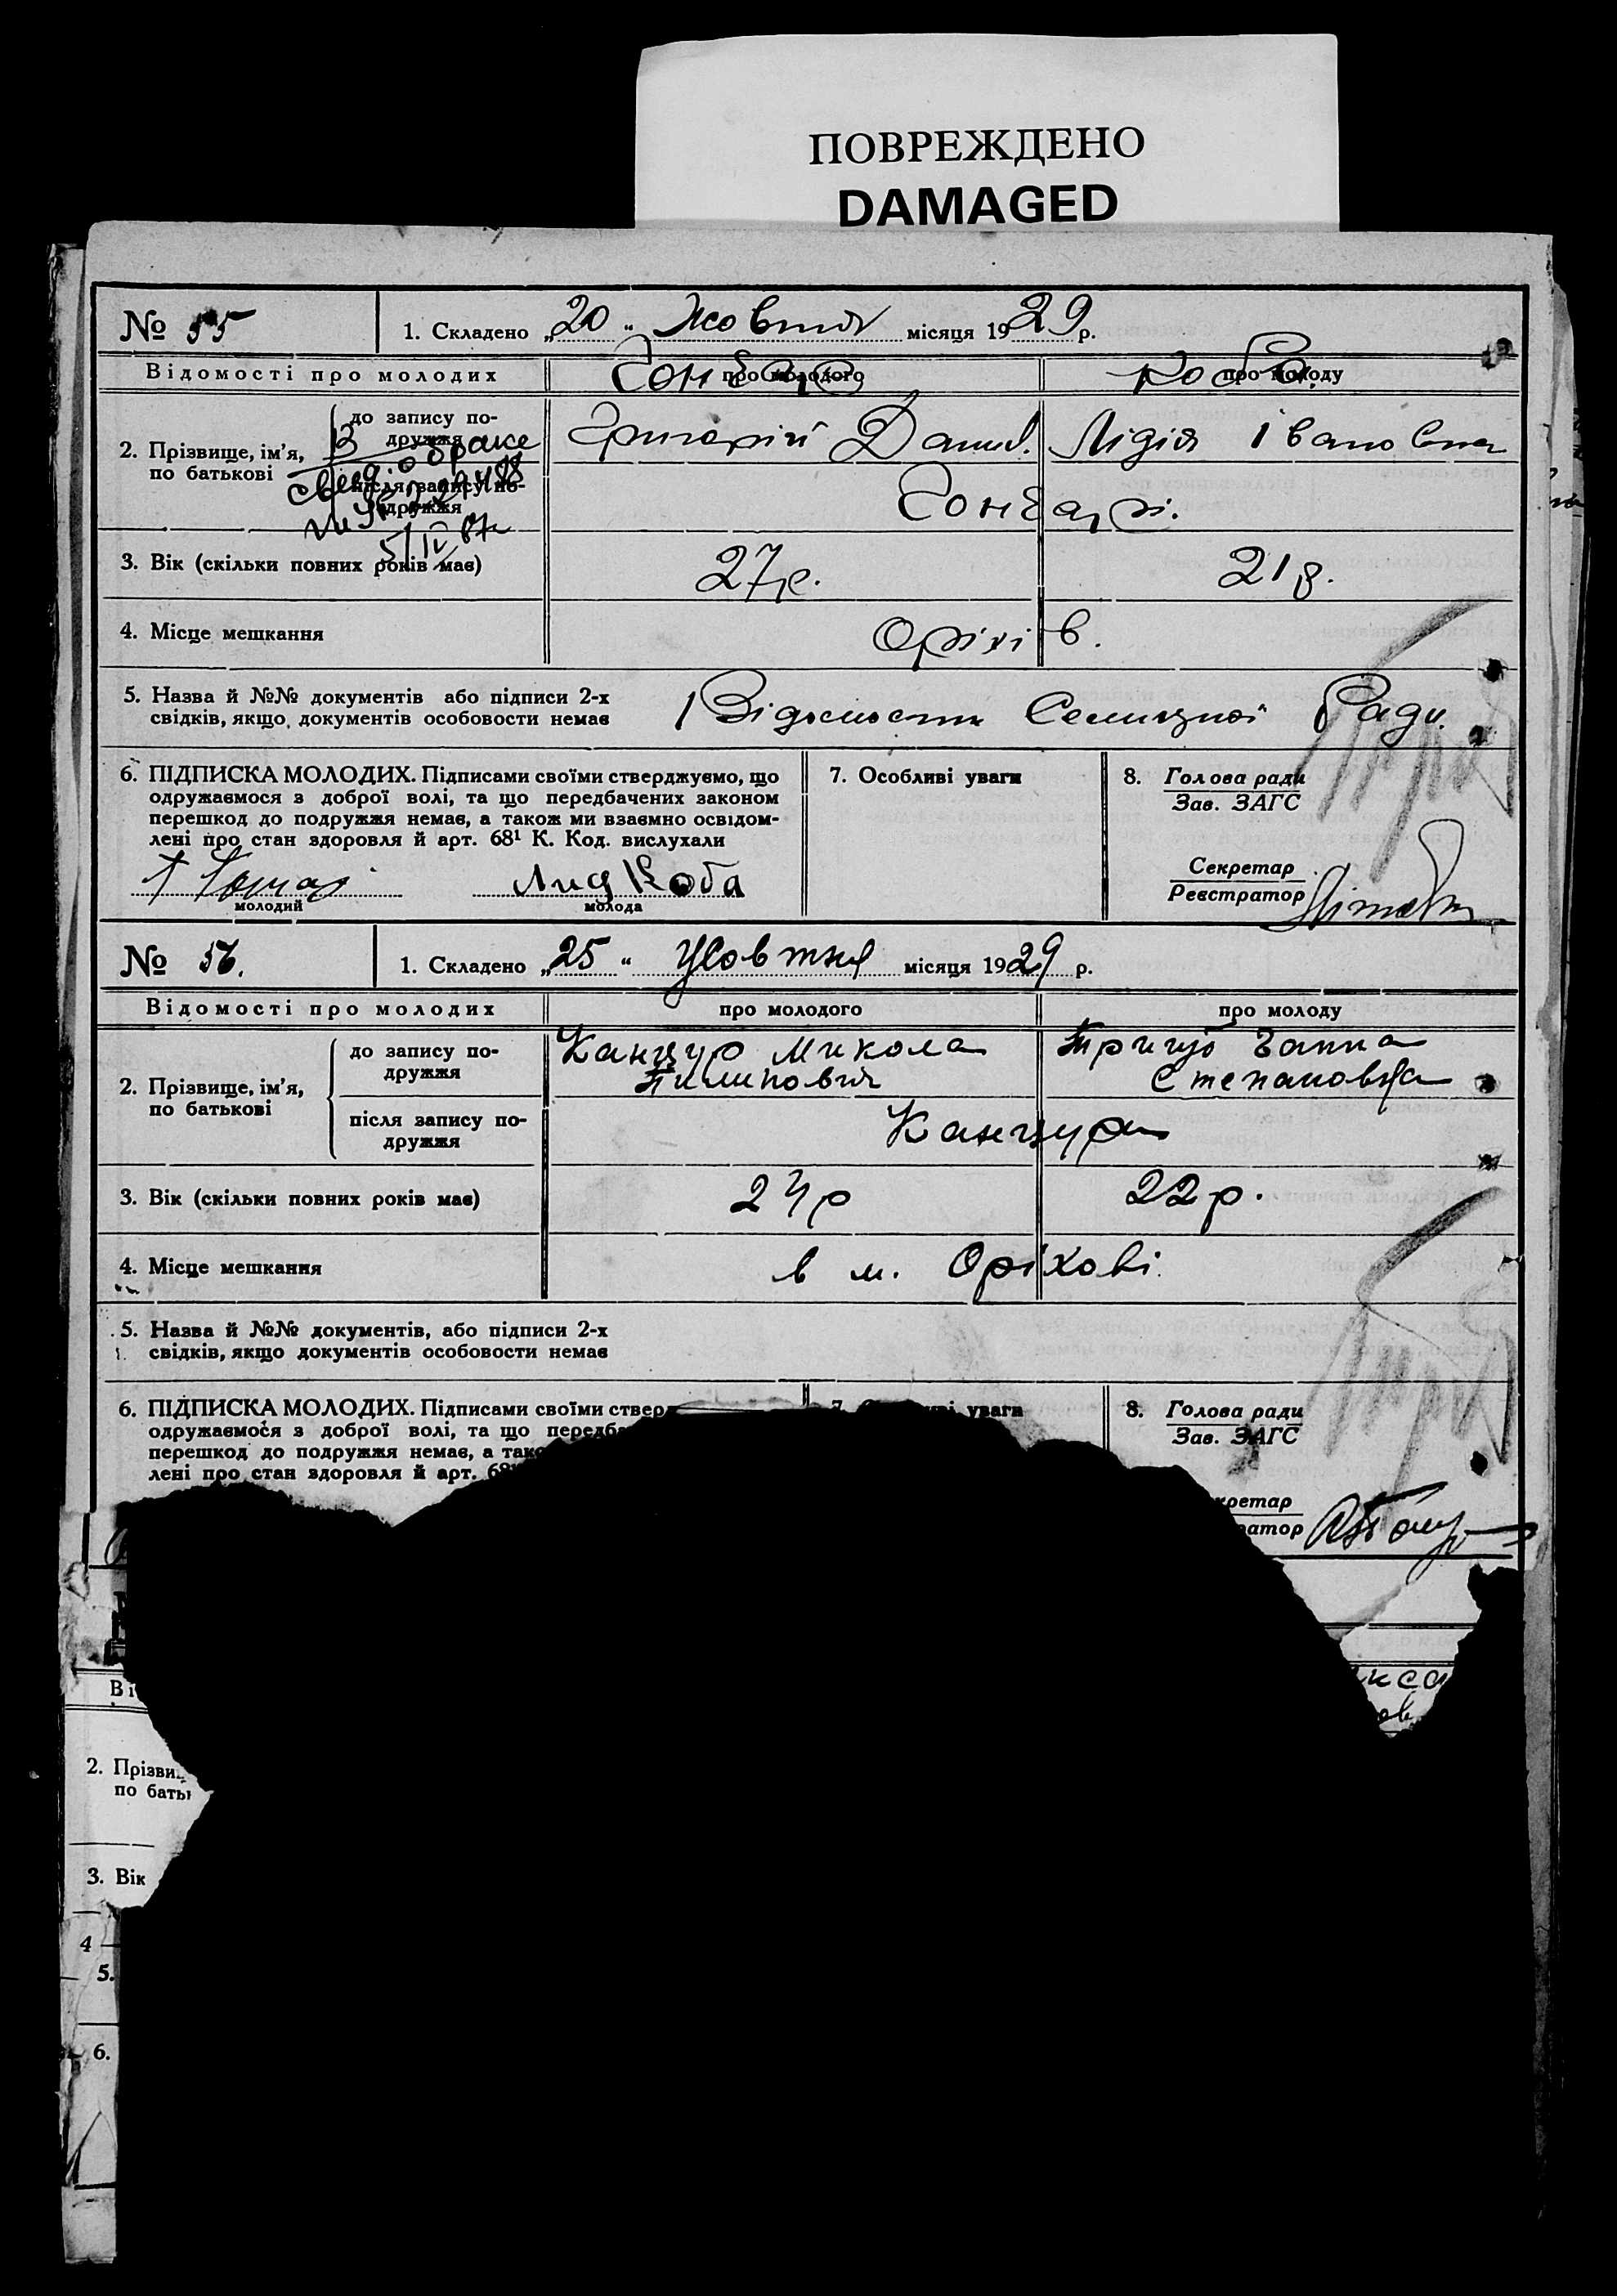 ПОВРЕЖДЕНО
DAMAGED
№ 55
1. Складено „20“ Жовтня місяця 1929 р.
Відомості про молодих про молодого про молоду
Гончар Коба
2. Прізвище, ім’я, по батькові
до запису подружжя
Григорій Данил. Лідія Івановна
після запису подружжя
Гончарі.
В
свид. о браке
5/IV
3. Вік (скільки повних років має) 27р. 21р.
4. Місце мешкання Оріхів.
5. Назва й №№ документів або підписи 2-х
свідків, якщо, документів особовости немає
Відомости Селищної Ради.
6. ПІДПИСКА МОЛОДИХ. Підписами своїми стверджуємо, що
одружаємося з доброї волі, та що передбачених законом
перешкод до подружжя немає, а також ми взаємно освідом-
лені про стан здоровля й арт. 68¹ К. Код. вислухали
Лид Коба
молодий молода
7. Особливі уваги
8. Голова ради
Зав. ЗАГС
Секретар
Реєстратор
№ 56.
1. Складено „25“ Жовтня місяця 1929 р.
Відомості про молодих про молодого про молоду
2. Прізвище, ім’я,
по батькові
до запису по-
дружжя
Канцур Микола
Пилипович
Степановна
після запису по-
дружжя
Канцури
3. Вік (скільки повних років має) 24р 22р.
4. Місце мешкання в м. Оріхові.
5. Назва й №№ документів, або підписи 2-х
свідків, якщо документів особовости немає
6. ПІДПИСКА МОЛОДИХ. Підписами своїми стверд
одружаємося з доброї волі, та що передба
перешкод до подружжя немає, а так
лені про стан здоровля й арт. 68
уваги
8. Голова ради
Зав. ЗАГС
кретар
ратор
Ві
2. Прізви
по бать
3. Вік
4
5.
6.